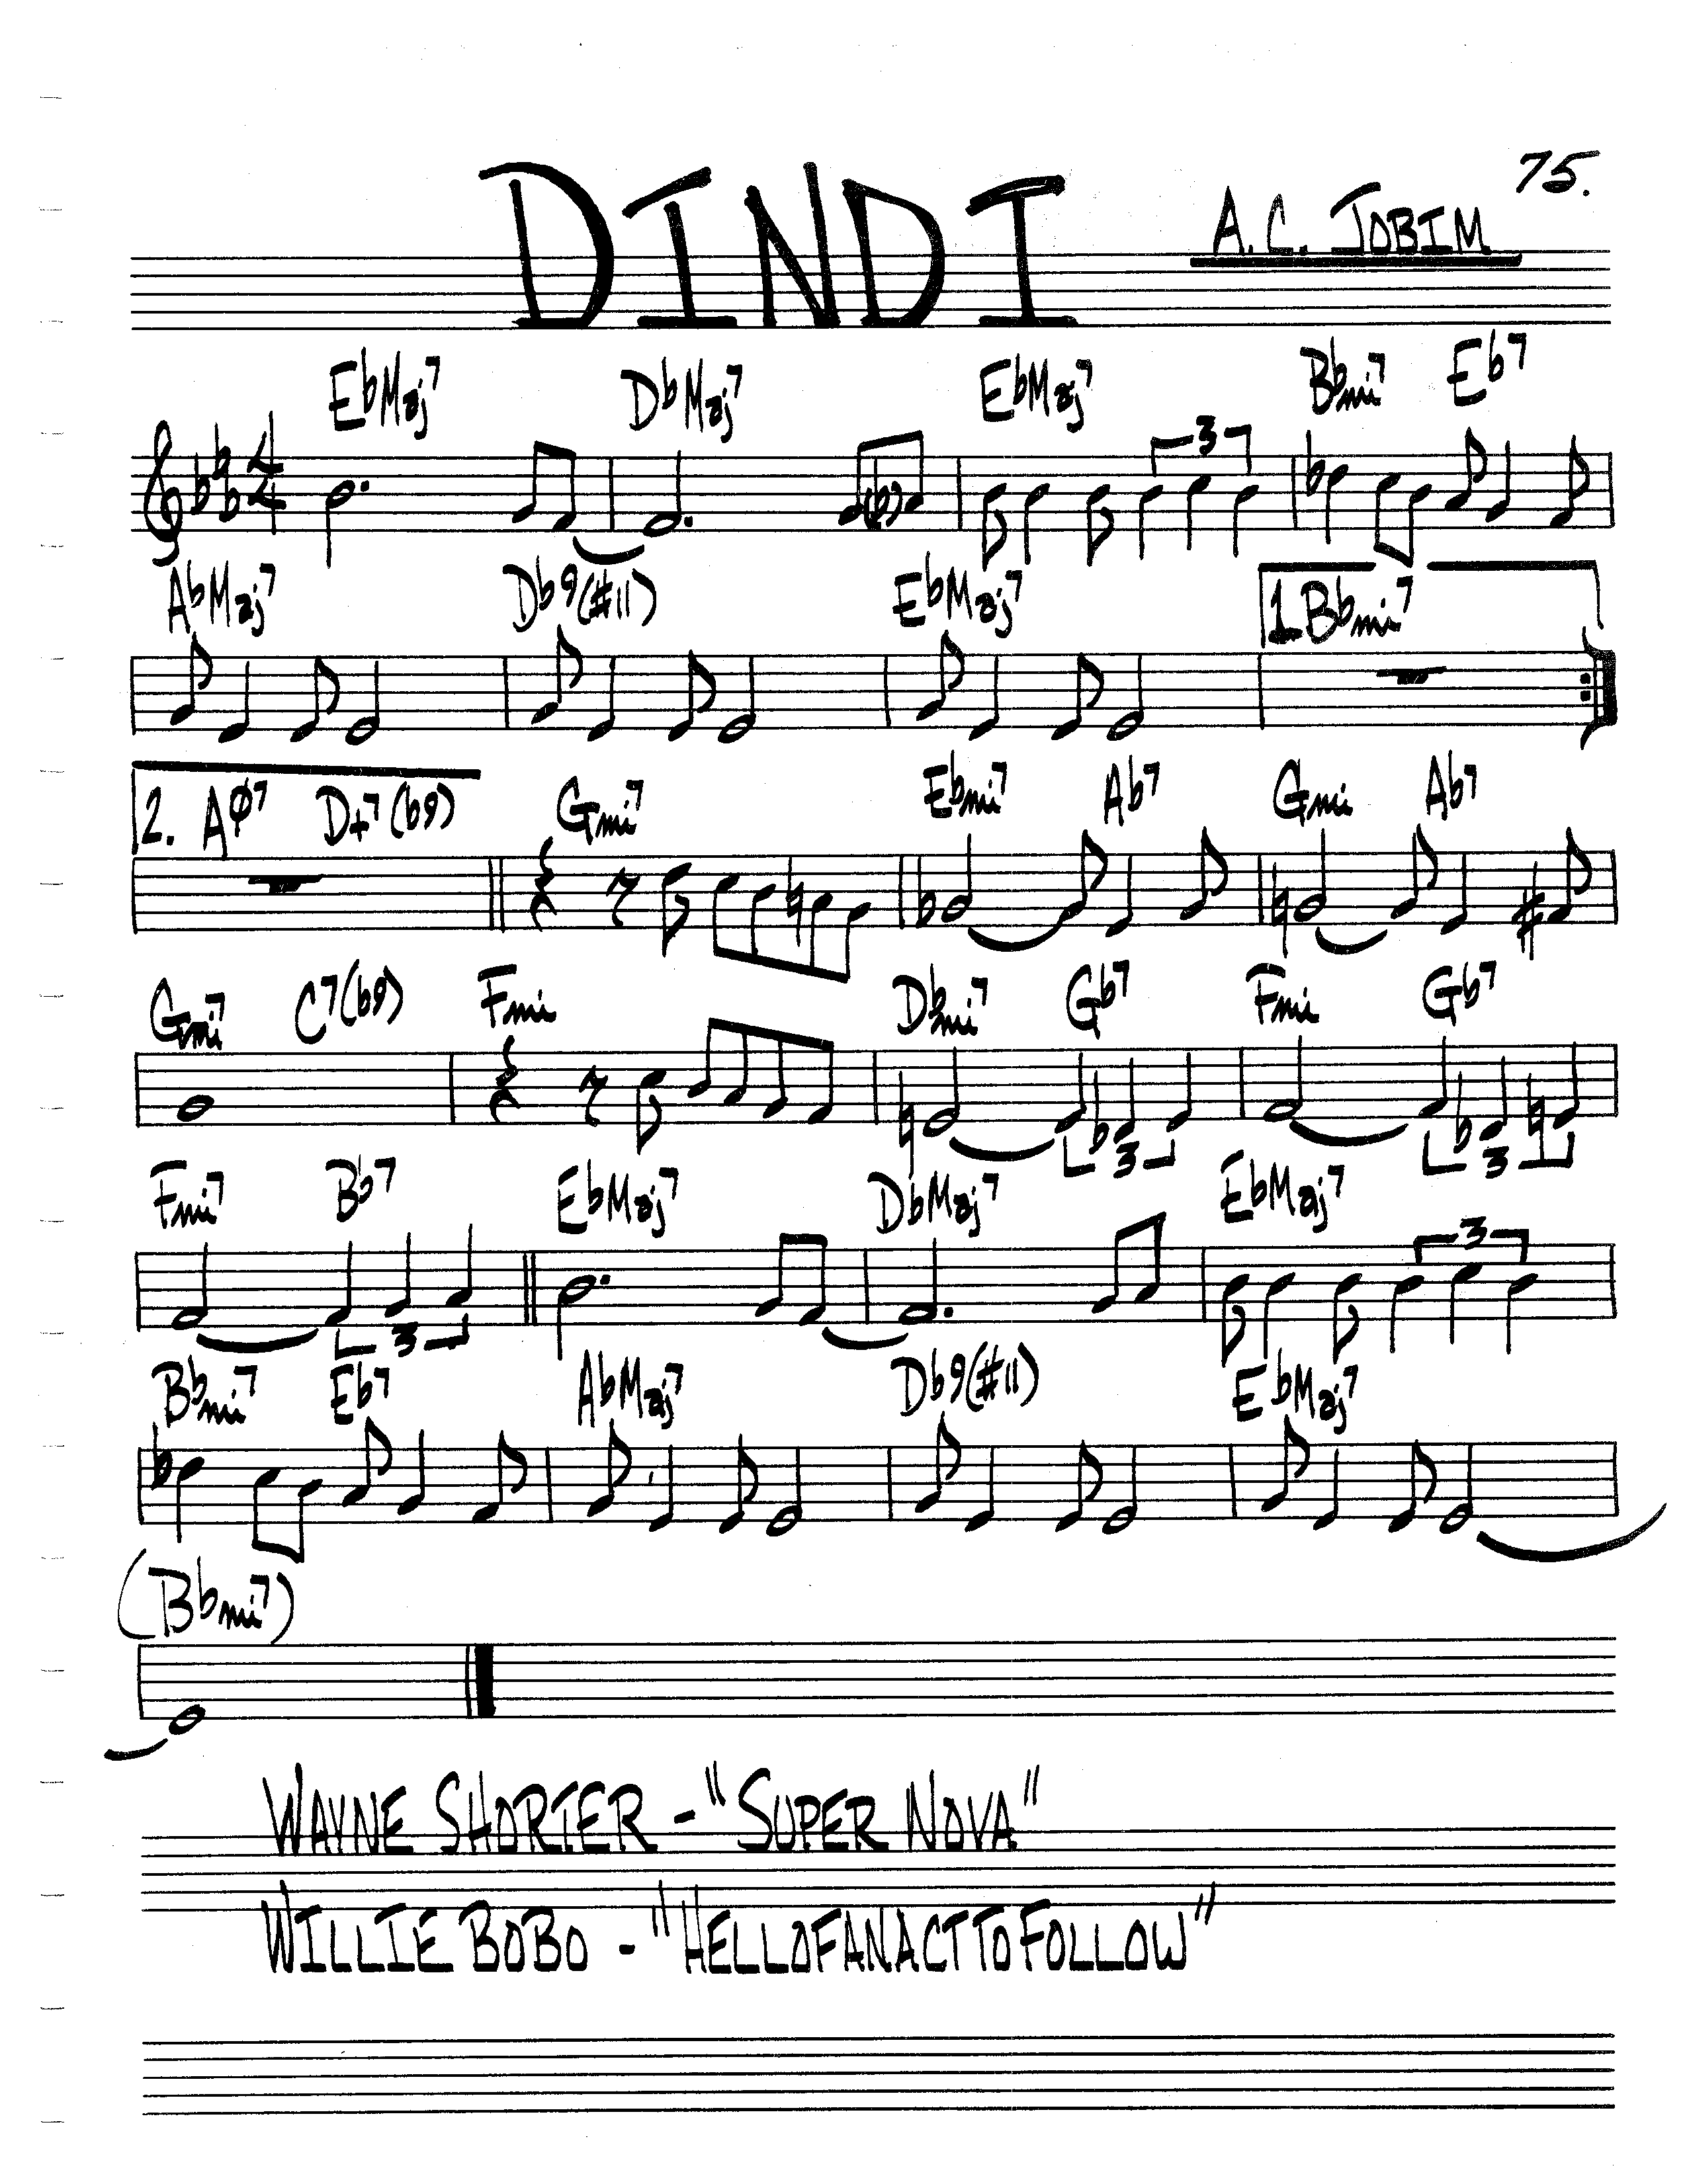 75.
DINDI
A.C. JOBIM
EbMaj7 DbMaj7 EbMaj7 Bbmi7 Eb7
4/4 (b) 3
AbMaj7 Db9(#11) EbMaj7 1. Bbmi7
2. AØ7 D+7(b9) Gmi7 Ebmi7 Ab7 Gmi Ab7
Gmi7 C7(b9) Fmi Dbmi7 Gb7 Fmi Gb7
3 3
Fmi7 Bb7 EbMaj7 DbMaj7 EbMaj7
3 3
Bbmi7 Eb7 AbMaj7 Db9(#11) EbMaj7
(Bbmi7)
WAYNE SHORTER - "SUPER NOVA"
WILLIE BOBO - "HELLOFANACTTOFOLLOW"